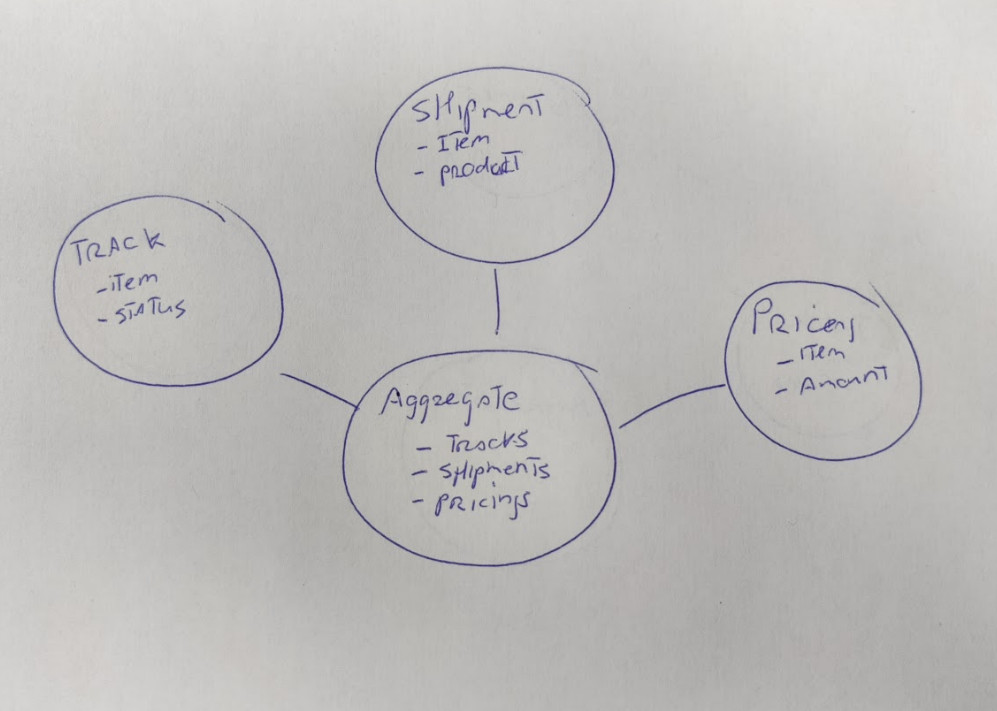 SHipment
- ITem
- PRODUCT
TRACK
- iTem
- STATUS
PRICing
- ITem
- AmounT
AggregaTe
- TRacks
- SHipmenTs
- PRicings